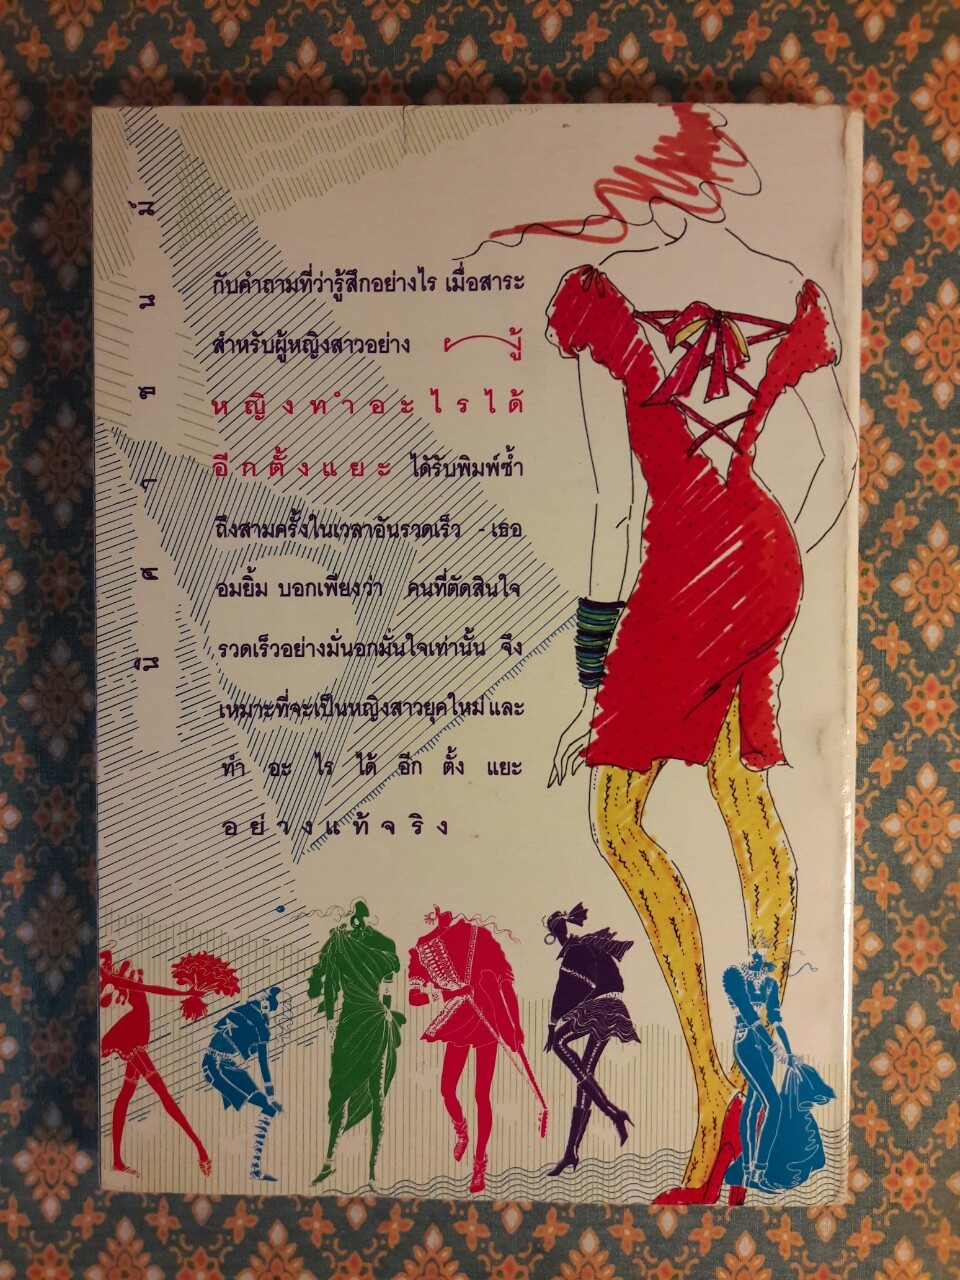 นิศาชนน์
กับคำถามที่ว่ารู้สึกอย่างไร เมื่อสาระ
สำหรับผู้หญิงสาวอย่าง ผู้
หญิงทำอะไรได้
อีกตั้งแยะ ได้รับพิมพ์ซ้ำ
ถึงสามครั้งในเวลาอันรวดเร็ว - เธอ
อมยิ้ม บอกเพียงว่า คนที่ตัดสินใจ
รวดเร็วอย่างมั่นอกมั่นใจเท่านั้น จึง
เหมาะที่จะเป็นหญิงสาวยุคใหม่ และ
ทำ อะ ไร ได้ อีก ตั้ง แยะ
อย่างแท้จริง